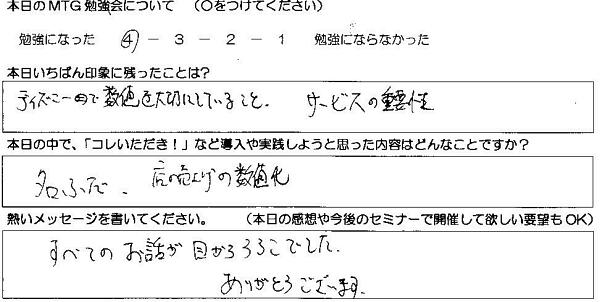 本日のMTG勉強会について （○をつけてください）
勉強になった ④ － 3 － 2 － 1 勉強にならなかった
本日いちばん印象に残ったことは?
ディズニー内で数値を大切にしていること。 サービスの重要性
本日の中で、「コレいただき！」など導入や実践しようと思った内容はどんなことですか？
名ふだ、 店の売上げの数値化
熱いメッセージを書いてください。 （本日の感想や今後のセミナーで開催して欲しい要望もOK）
すべてのお話が目からうろこでした。
ありがとうございます。